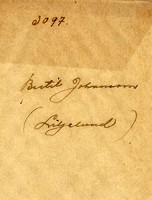 3097.
Bertil Johansson
(Liljelund)